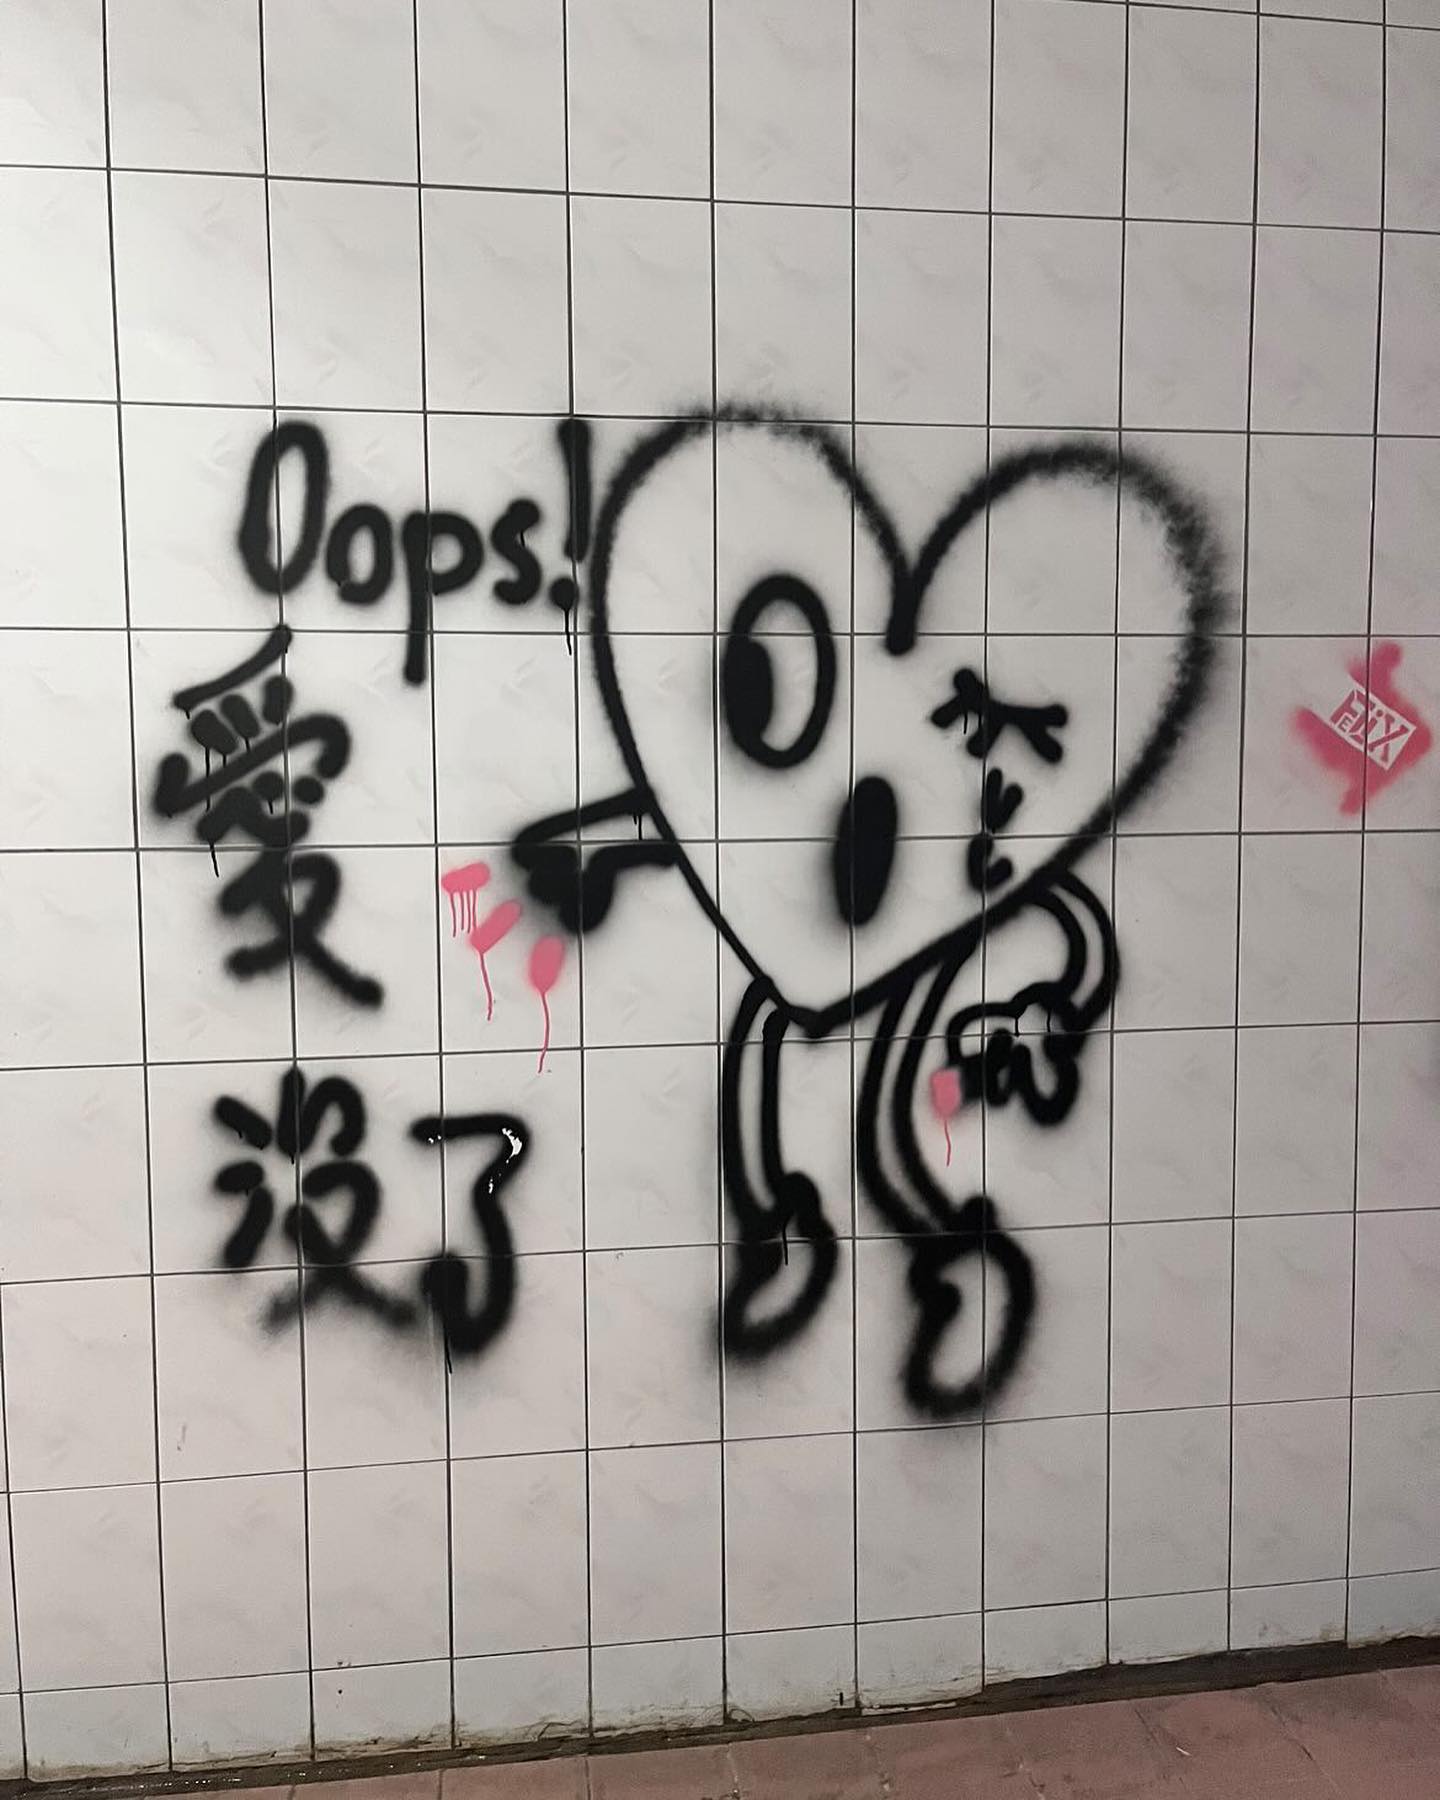 Oops!
愛
没了
FELIX